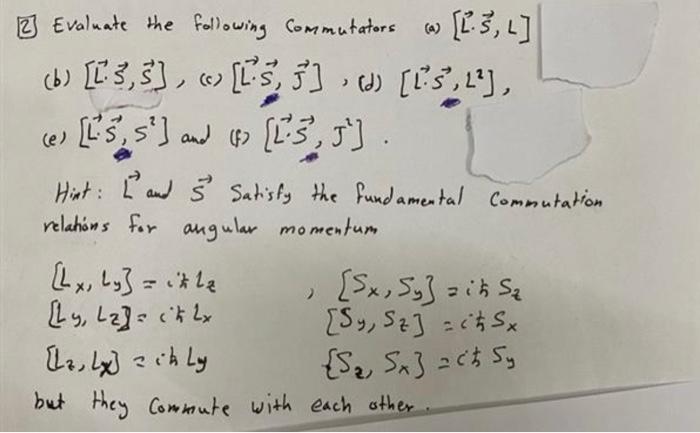 [2] Evaluate the following Commutators (a) [L⃗·S⃗, L]
(b) [L⃗·S⃗, S⃗], (c) [L⃗·S⃗, J⃗], (d) [L⃗·S⃗, L²],
(e) [L⃗·S⃗, S²] and (f) [L⃗·S⃗, J²].
Hint: L⃗ and S⃗ Satisfy the fundamental Commutation
relations for angular momentum
[Lx, Ly] = iħ Lz , [Sx, Sy] = iħ Sz
[Ly, Lz] = iħ Lx [Sy, Sz] = iħ Sx
[Lz, Lx] = iħ Ly [Sz, Sx] = iħ Sy
but they Commute with each other.